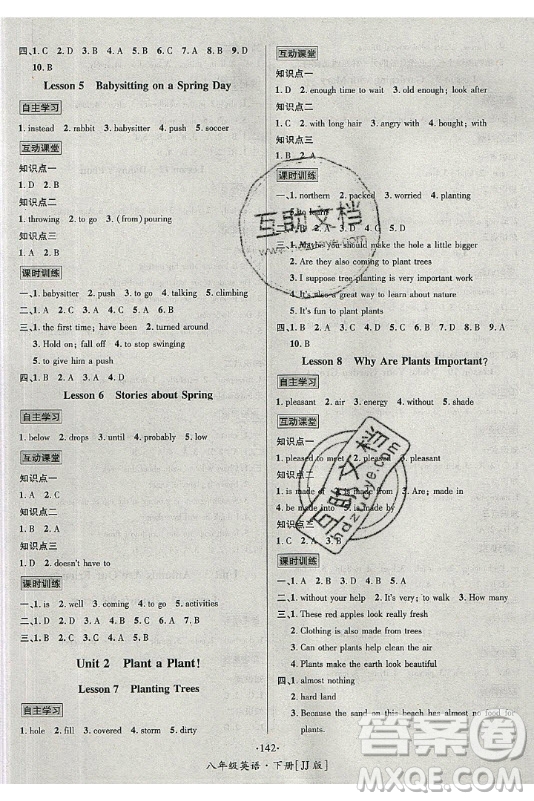 四、1. C 2. D 3. B 4. A 5. B 6. A 7. B 8. B 9. D
10. B
Lesson 5 Babysitting on a Spring Day
自主学习
1. instead 2. rabbit 3. babysitter 4. push 5. soccer
互动课堂
知识点一
1. D 2. B
知识点二
1. throwing 2. to go 3. (from)pouring
知识点三
1. D 2. A
课时训练
一、1. babysitter 2. push 3. to go 4. talking 5. climbing
二、1. A 2. D 3. C 4. B 5. B
三、1. the first time; have been 2. turned around
3. Hold on; fall off 4. to stop swinging
5. to give him a push
四、1. D 2. A 3. C 4. B 5. B
Lesson 6 Stories about Spring
自主学习
1. below 2. drops 3. until 4. probably 5. low
互动课堂
知识点一
1. A 2. C
知识点二
1. A 2. B
知识点三
1. D 2. doesn't have to
课时训练
一、1. is 2. well 3. below 4. to go 5. activities
二、1. B 2. D 3. C 4. A 5. B
三、1. B 2. C 3. D 4. A 5. B
Unit 2 Plant a Plant!
Lesson 7 Planting Trees
自主学习
1. hole 2. fill 3. covered 4. storm 5. dirty
互动课堂
知识点一
1. D 2. enough time to wait 3. old enough; look after
知识点二
1. C 2. with long hair 3. angry with 4. with nothing
知识点三
1. B 2. A
课时训练
一、1. northern 2. packed 3. worried 4. planting
5. to learn
三、1. Maybe you should make the hole a little bigger
2. Are they also coming to plant trees
3. I suppose tree planting is very important work
4. It's also a great way to learn about nature
5. It's fun to plant trees
10. B
Lesson 8 Why Are Plants Important?
自主学习
1. pleasant 2. air 3. energy 4. without 5. shade
互动课堂
知识点一
1. pleased to meet 2. pleased 3. pleasant
知识点二
1. is made of 2. is made from 3. Are; made in
4. be made into 5. are made of
知识点三
1. D 2. B
课时训练
三、1. without your help 2. to walk 3. How many
2. 1. These red apples look really fresh
2. Clothing is also made from trees
3. Plants can also help clean the air
4. Plants make the earth look beautiful
四、1. almost nothing
2. hard land
3. Because the sand on this beach has no food for
plants.
·142·
八年级英语·下册[JJ版]
互助文档
互助文档
作业精灵
MXQE.COM